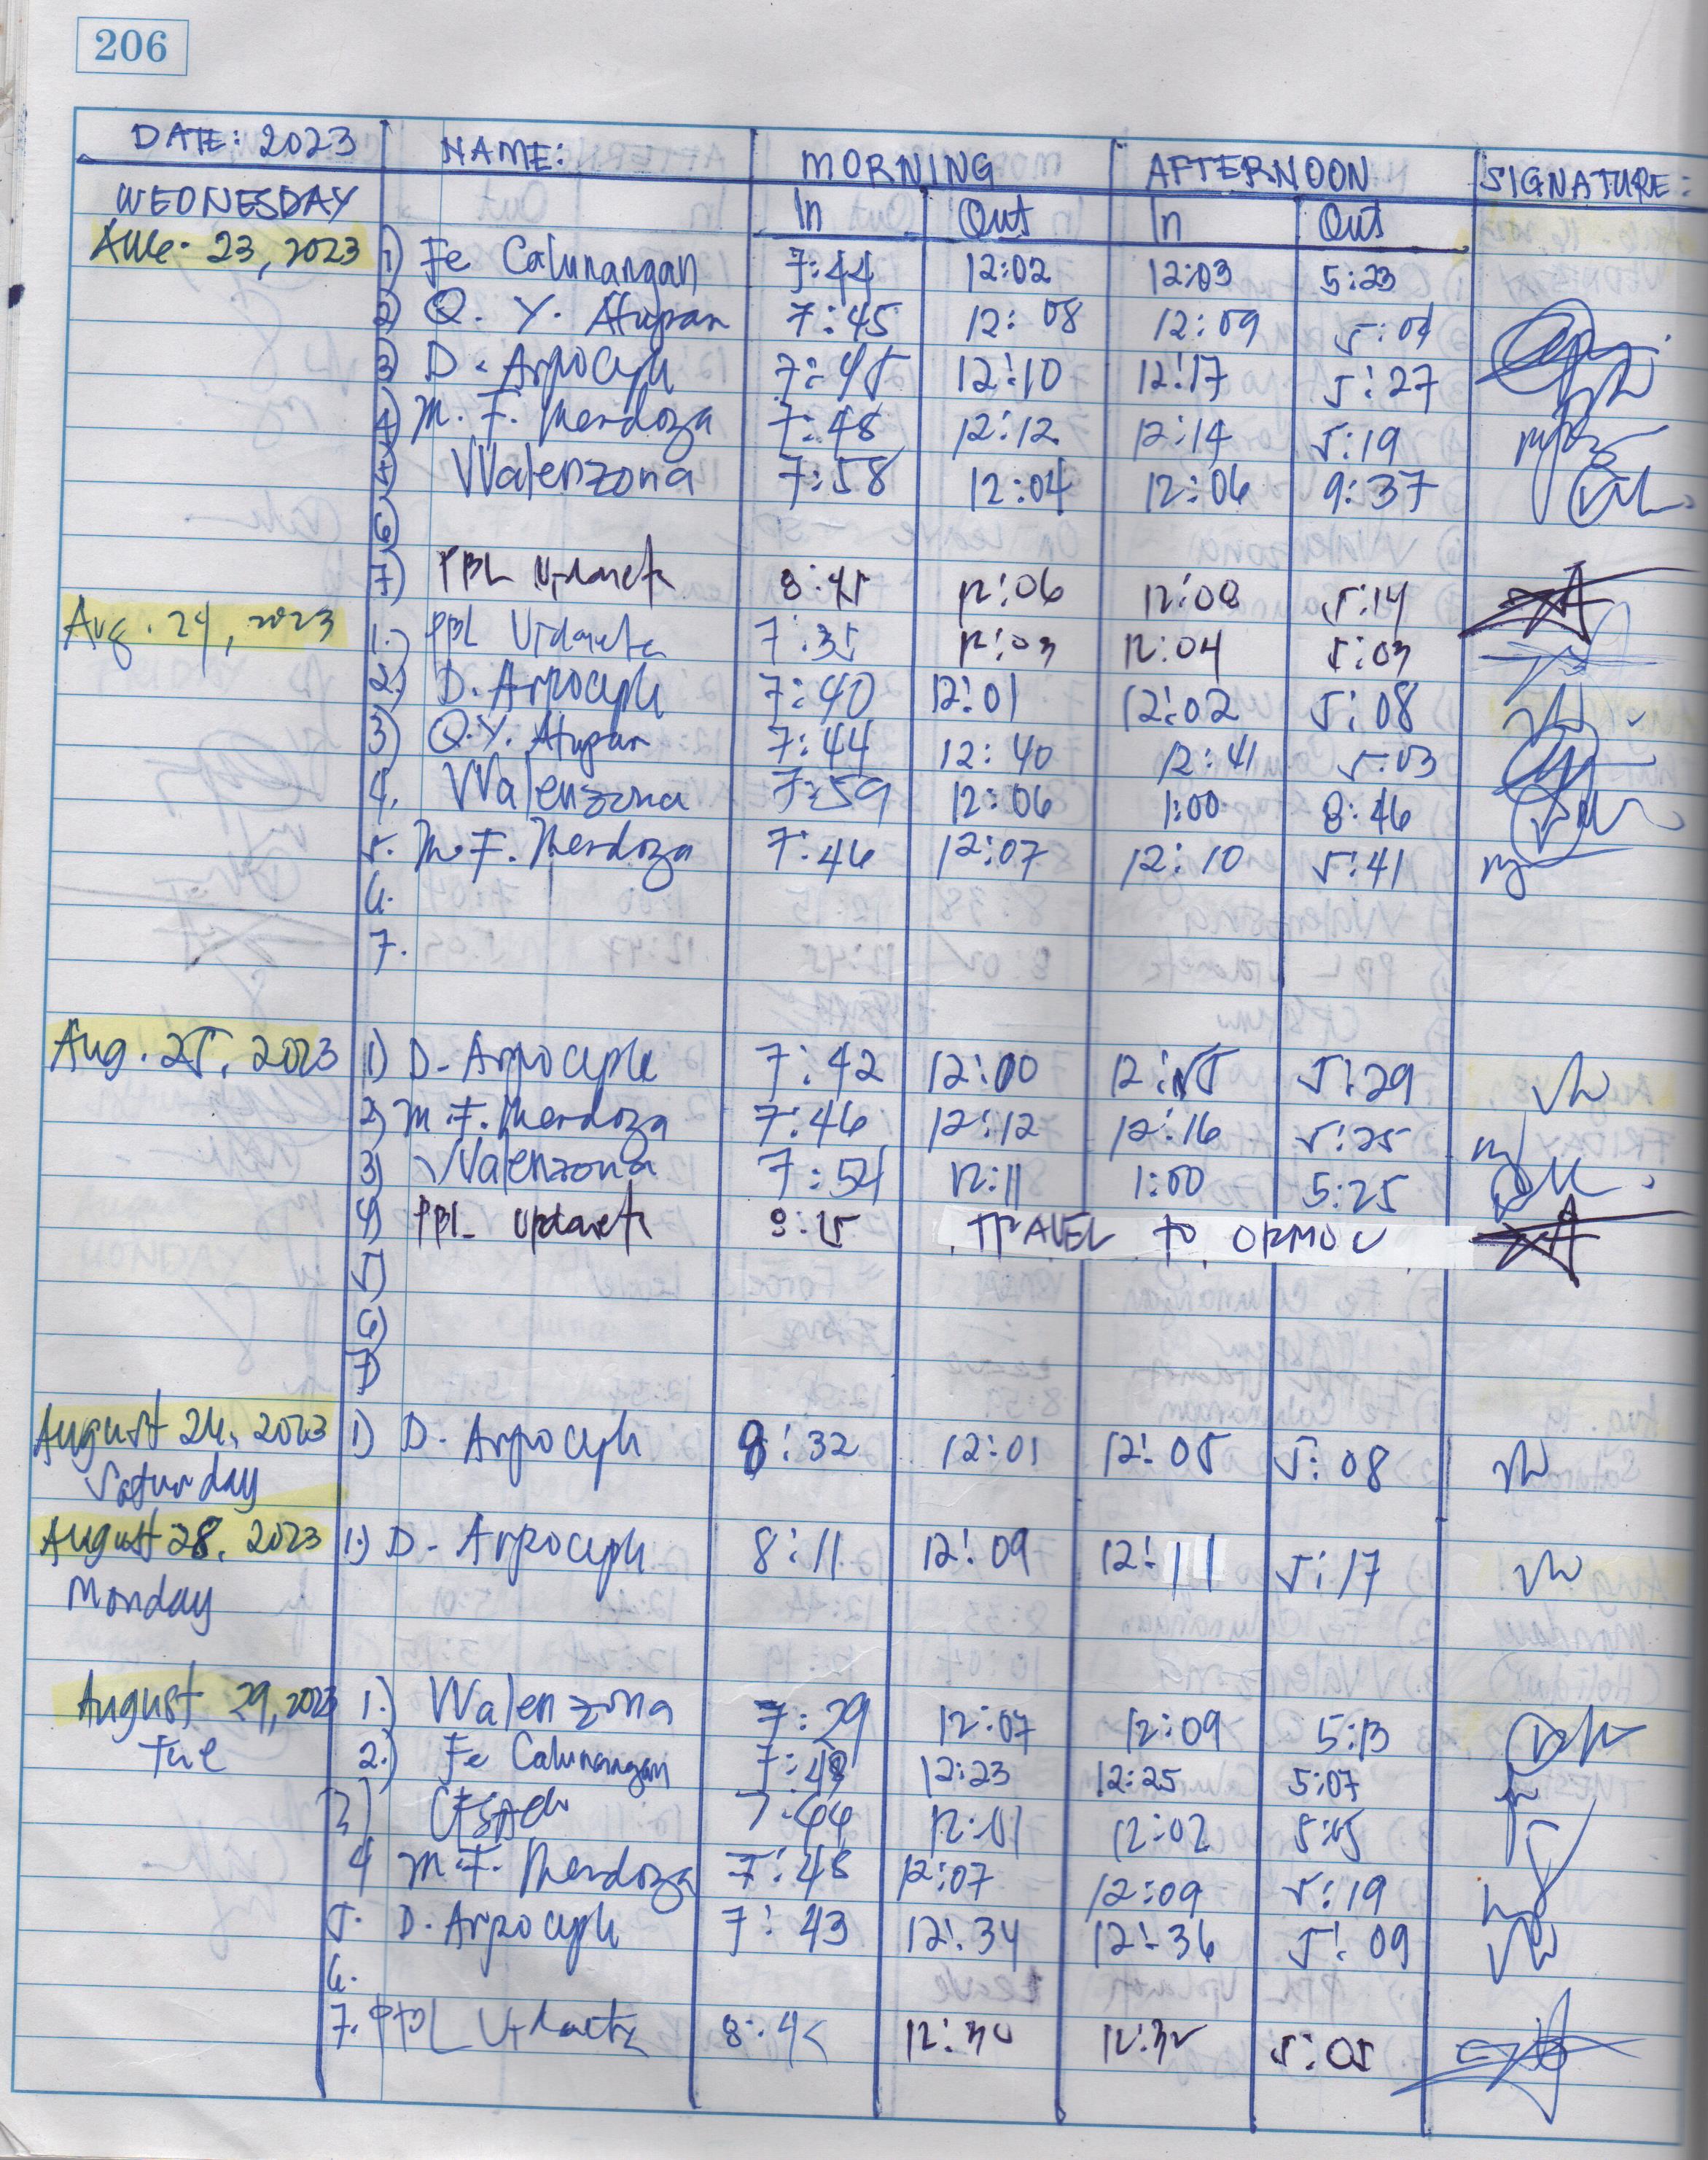 206
DATE: 2023 NAME: MORNING AFTERNOON SIGNATURE:
WEDNESDAY In Out In Out
AUG. 23, 2023 1) Fe Calunangan 7:44 12:02 12:03 5:23
2) Q. Y. Atupan 7:45 12:08 12:09 5:04
3) D. Arpoceph 7:45 12:10 12:17 5:27
4) M. F. Mendoza 7:48 12:12 12:14 5:19
5) VValenzona 7:58 12:04 12:06 9:37
6)
7) PBL 8:45 12:06 12:08 5:14
Aug. 24, 2023 1.) PBL 7:35 12:03 12:04 5:03
2.) D. Arpoceph 7:40 12:01 12:02 5:08
3) Q.Y. Atupan 7:44 12:40 12:41 5:03
4. VValenzona 7:59 12:06 1:00 8:46
5. M. F. Mendoza 7:46 12:07 12:10 5:41
6.
7.
Aug. 25, 2023 1) D. Arpoceph 7:42 12:00 12:15 5:29
2) M.F. Mendoza 7:46 12:12 12:16 5:25
3) VValenzona 7:54 12:11 1:00 5:25
4) PBL 9:15 TRAVEL TO ORMOC
5)
6)
7)
August 26, 2023 1) D. Arpoceph 8:32 12:01 12:05 5:08
Saturday
August 28, 2023 1.) D. Arpoceph 8:11 12:09 12:11 5:17
Monday
August 29, 2023 1.) VValenzona 7:29 12:07 12:09 5:13
Tue 2.) Fe Calunangan 7:48 12:23 12:25 5:07
3) 7:44 12:01 12:02 5:05
4 M.F. Mendoza 7:48 12:07 12:09 5:19
5. D. Arpoceph 7:43 12:34 12:36 5:09
6.
7. PBL 8:45 12:30 12:32 5:05